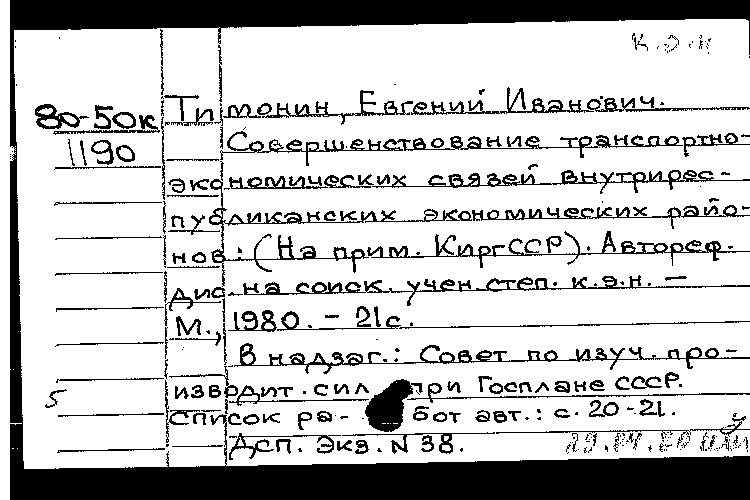 к.э.н
80-50к
1190
Типмонин, Евгений Иванович.
Совершенствование транспортно-
экономических связей внутрирес-
публиканских экономических райо-
нов: (На прим. КиргССР). Автореф.
дис. на соиск. учен. степ. к.э.н. —
М., 1980. - 21 с.
В надзаг.: Совет по изуч. про-
изводит. сил при Госплане СССР.
Список ра- бот авт.: с. 20-21.
Дсп. Экз. N 38.
5